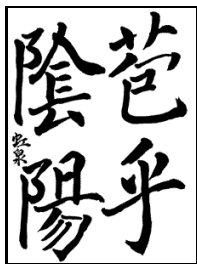 苞乎
陰陽
虹泉